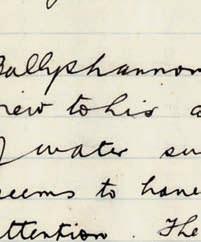 Ballyshannon
new to his a
of water su
seems to have
attention. The